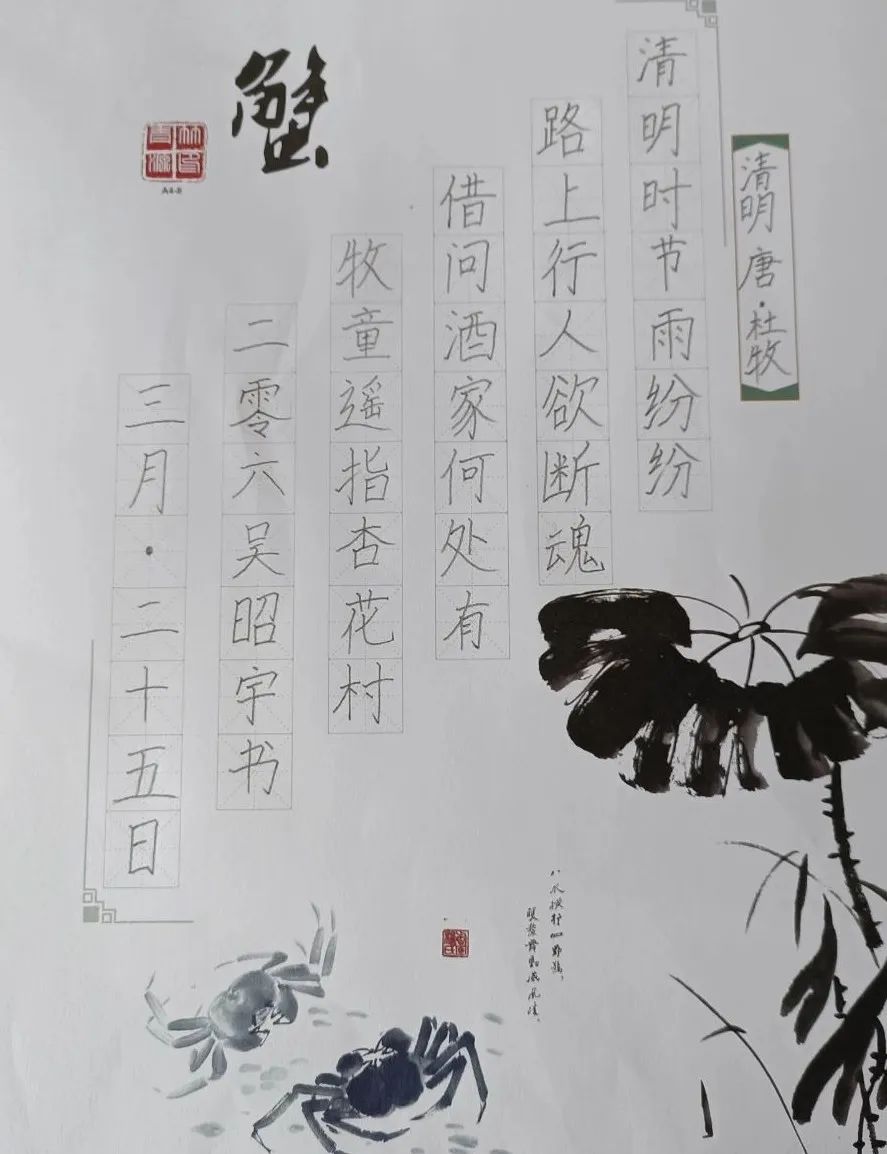 清明 唐·杜牧
清明时节雨纷纷
路上行人欲断魂
借问酒家何处有
牧童遥指杏花村
二零六吴昭宇书
三月·二十五日
蟹
A4-8